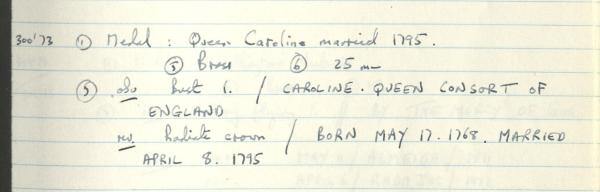 300'73 ① Medal : Queen Caroline married 1795.
⑤ Brass ⑥ 25 mm
⑨ obv bust l. / CAROLINE. QUEEN CONSORT OF
ENGLAND
rev. Radiate crown / BORN MAY 17. 1768. MARRIED
APRIL 8. 1795